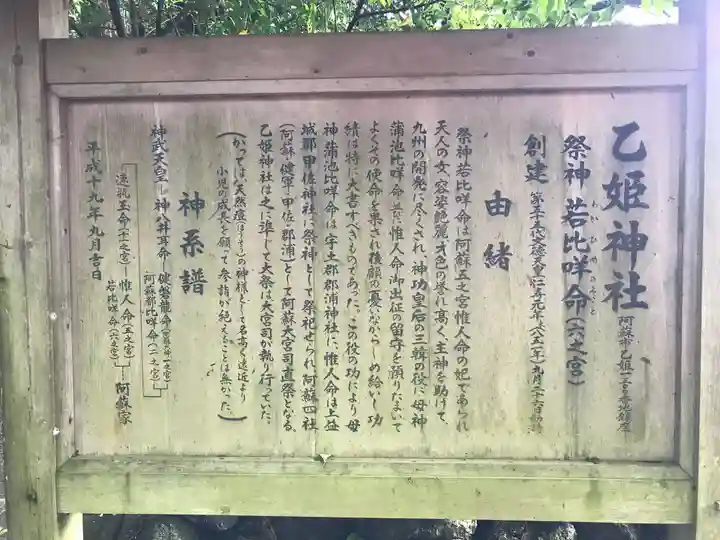 乙姫神社
阿蘇市乙姫
祭神 若比咩命(六之宮)
わかひめのみこと
創建 第五十五代文徳天皇仁寿元年(八五一年)九月二十六日勧請
由緒
祭神若比咩命は阿蘇五之宮惟人命の妃であられ
天人の女、容姿艶麗、才色の誉れ高く、主神を助けて、
九州の開発に尽くされ、神功皇后の三韓の役に母神
蒲池比咩命並に惟人命御出征の留守を預りたまいて
よくその使命を果され後顧の憂いなからしめ給いし功
績は特に大書すべきものであった。この役の功により母
神蒲池比咩命は宇土郡郡浦神社に、惟人命は上益
城郡甲佐神社に祭神として祭祀せられ、阿蘇四社
(阿蘇・健軍・甲佐・郡浦)として阿蘇大宮司直祭となる。
乙姫神社は之に準じて大祭は大宮司が執り行っていた。
(かつては、天然痘(ほうそう)の神様として名高く遠近より
小児の成長を願って参詣が絶えることは無かった。)
神系譜
神武天皇―神八井耳命―健磐龍命(一之宮)
阿蘇都比咩命(二之宮)
速瓶玉命(十一之宮)―惟人命(五之宮)
若比咩命(六之宮)―阿蘇家
平成十九年九月吉日